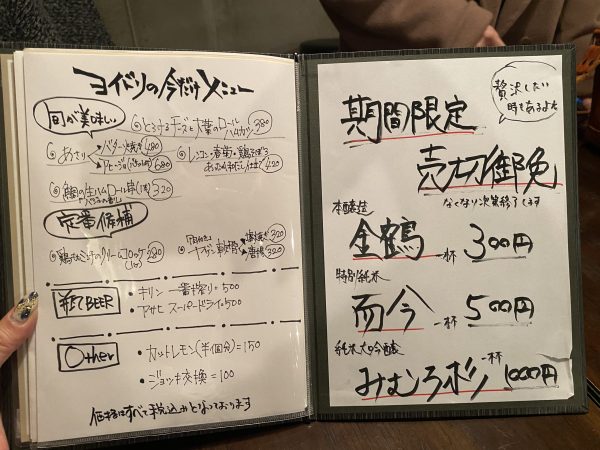 ヨイドリの今だけメニュー
旬が美味しい
とろけるチーズと大葉のロールハムカツ 280
あさり
・バター焼き 480
・アヒージョ 680
レンコン・春菊・鶏そぼろ
420
生ハムロール串(1本) 320
定番候補
コロッケ 280
ヤゲン軟骨
320
唐揚 320
瓶 BEER
・キリン 一番搾り = 500
・アサヒ スーパードライ = 500
Other
・カットレモン(半個分) = 150
・ジョッキ交換 = 100
価格はすべて税込みとなっております
贅沢したい
時もあるよね
期間限定
売切御免
なくなり次第終了です
本醸造
金鶴 一杯 300円
特別純米
而今 一杯 500円
純米大吟醸
みむろ杉 一杯 1000円